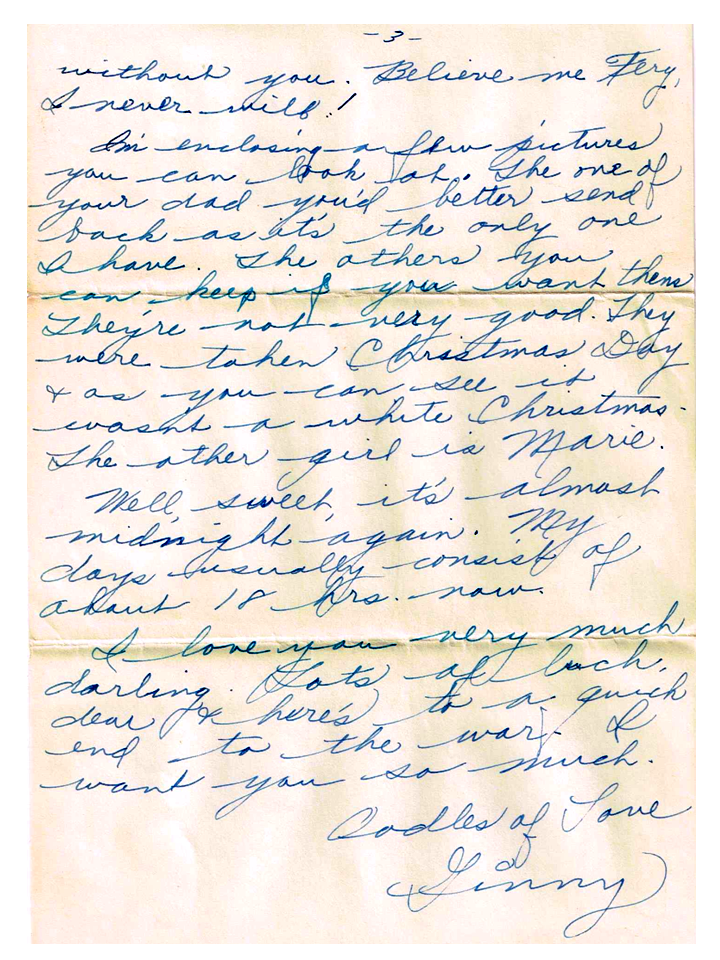 - 3 -
without you. Believe me Fery,
I never will!
I'm enclosing a few pictures
you can look at. The one of
your dad you'd better send
back as it's the only one
I have. The others you
can keep if you want them
They're not very good. They
were taken Christmas Day
& as you can see it
wasn't a white Christmas.
The other girl is Marie.
Well, sweet, it's almost
midnight again. My
days usually consist of
about 18 hrs. now.
I love you very much
darling. Lots of luck,
dear & here's to a quick
end to the war. I
want you so much.
Oodles of Love
Ginny